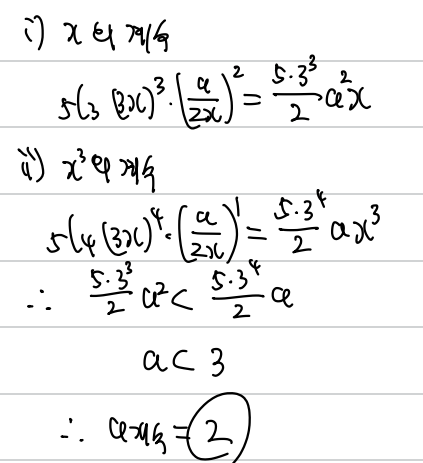 i) x의 계수
5C3 (3x)^3·(a/2x)^2 = 5·3^3/2 a^2x
ii) x^3의 계수
5C4 (3x)^4·(a/2x)^1 = 5·3^4/2 ax^3
∴ 5·3^3/2 a^2 < 5·3^4/2 a
a < 3
∴ a개수 = 2